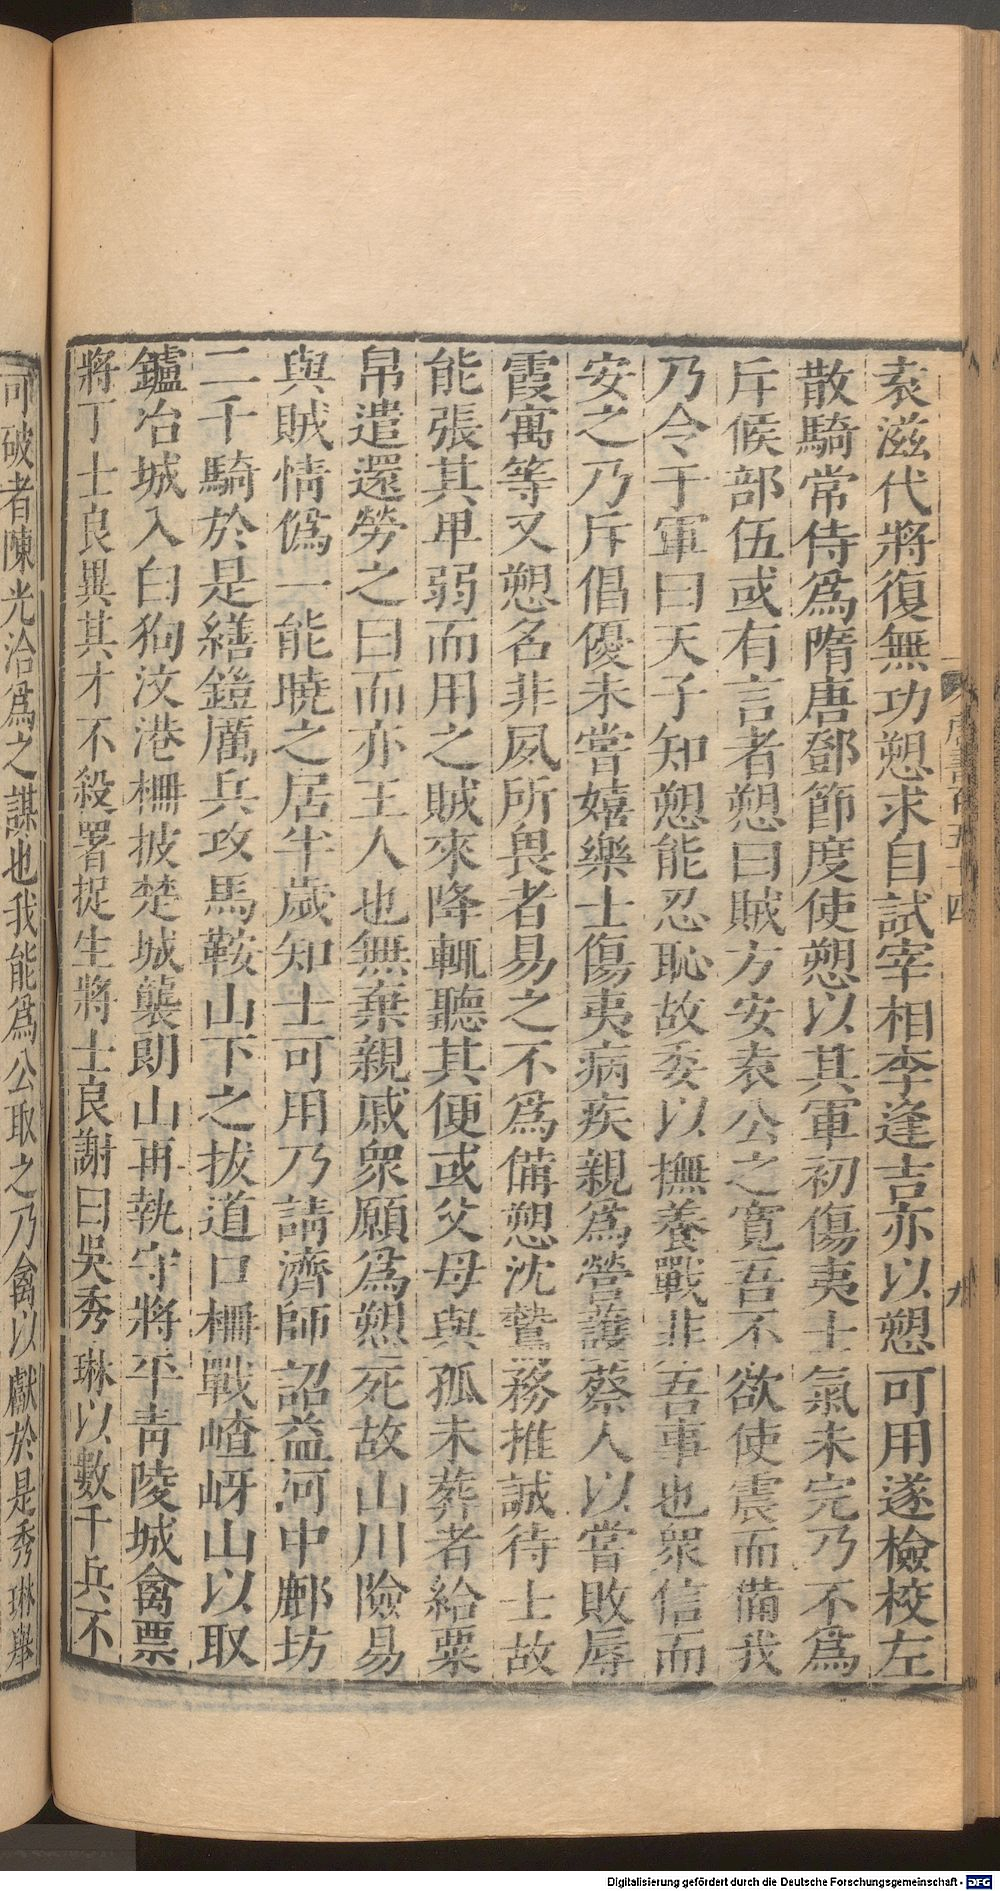 袁滋代將復無功愬求自試宰相李逢吉亦以愬可用遂檢校左
散騎常侍爲隋唐鄧節度使愬以其軍初傷夷士氣未完乃不爲
斥候部伍或有言者愬曰賊方安袁公之寬吾不欲使震而備我
乃令于軍曰天子知愬能忍恥故委以撫養戰非吾事也眾信而
安之乃斥倡優未嘗嬉樂士傷夷病疾親爲營護蔡人以嘗敗辱
霞寓等又愬名非夙所畏者易之不爲備愬沈鷙務推誠待士故
能張其卑弱而用之賊來降輒聽其便或父母與孤未葬者給粟
帛遣還勞之曰而亦王人也無棄親戚眾願爲愬死故山川險易
與賊情僞一能曉之居半歲知士可用乃請濟師詔益河中鄜坊
二千騎於是繕鎧厲兵攻馬鞍山下之拔道口柵戰嵖岈山以取
鑪冶城入白狗汶港柵披楚城襲朗山再執守將平靑陵城禽票
將丁士良異其才不殺署捉生將士良謝曰吳秀琳以數千兵不
可破者陳光洽爲之謀也我能爲公取之乃禽以獻於是秀琳舉
唐書百五十四
九
Digitalisierung gefördert durch die Deutsche Forschungsgemeinschaft - DFG